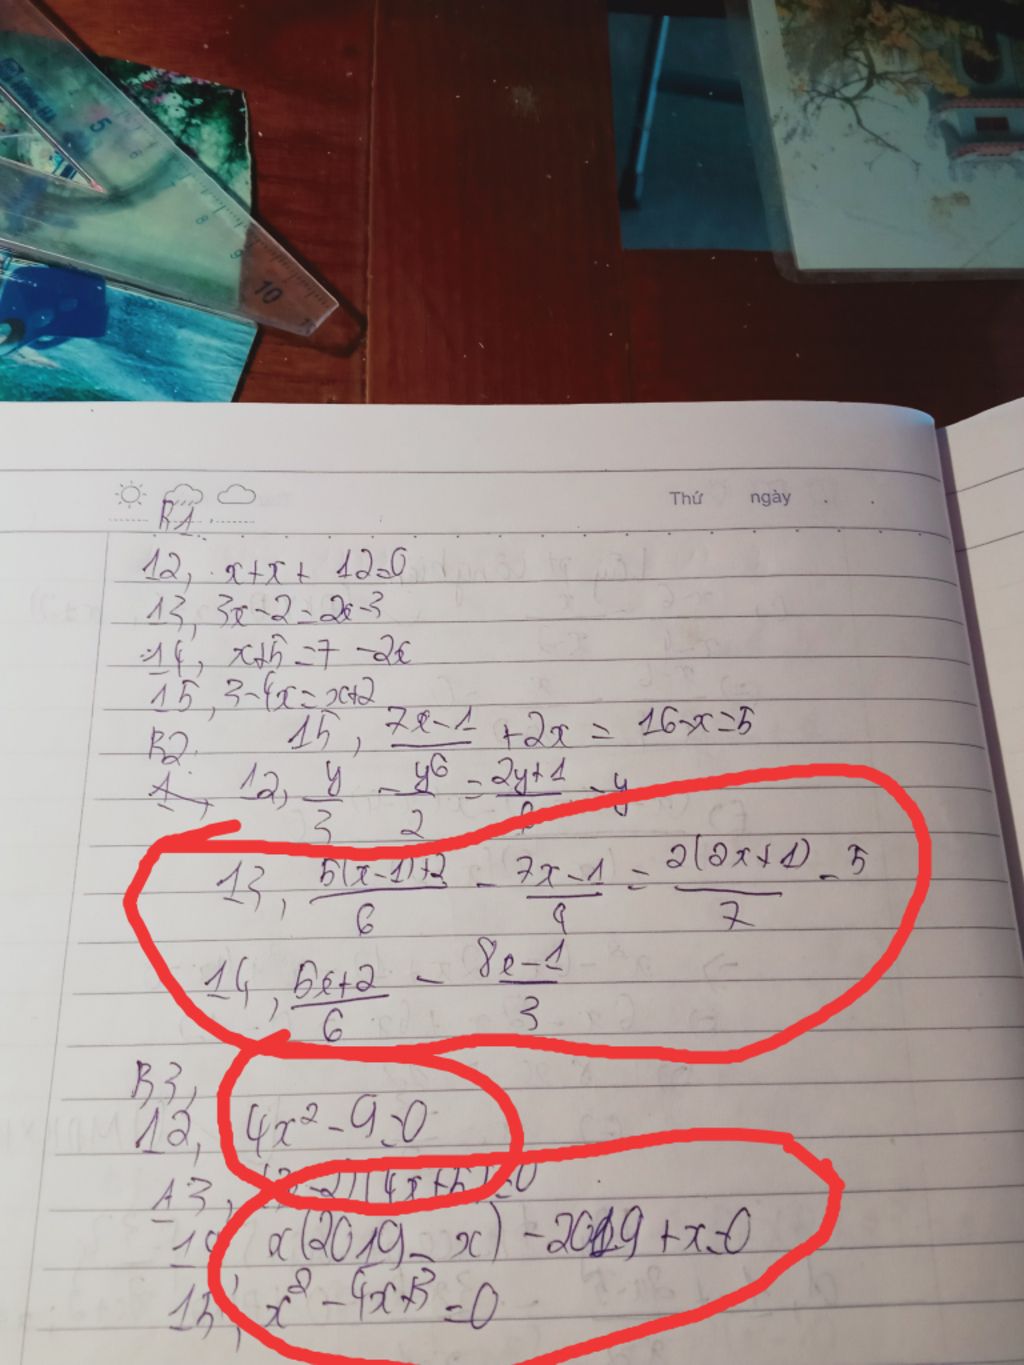 5
6
8
9
10
Thứ ngày
B1.
12, x+x+ 12=0
13, 3x-2=2x-3
14, x+5=7-2x
15, 3-4x=x+2
B2. 15, 7x-1/6 +2x = 16-x=5
12, y/3 - y6/2 = 2y+1/6 -y
13, 5(x-1)+2/6 - 7x-1/4 = 2(2x+1)/7 -5
14, 5x+2/6 - 8x-1/3
B3,
12, 4x²-9=0
13, (4x+5)=0
14, x(2019-x)-2019+x=0
15, x²-4x+3=0